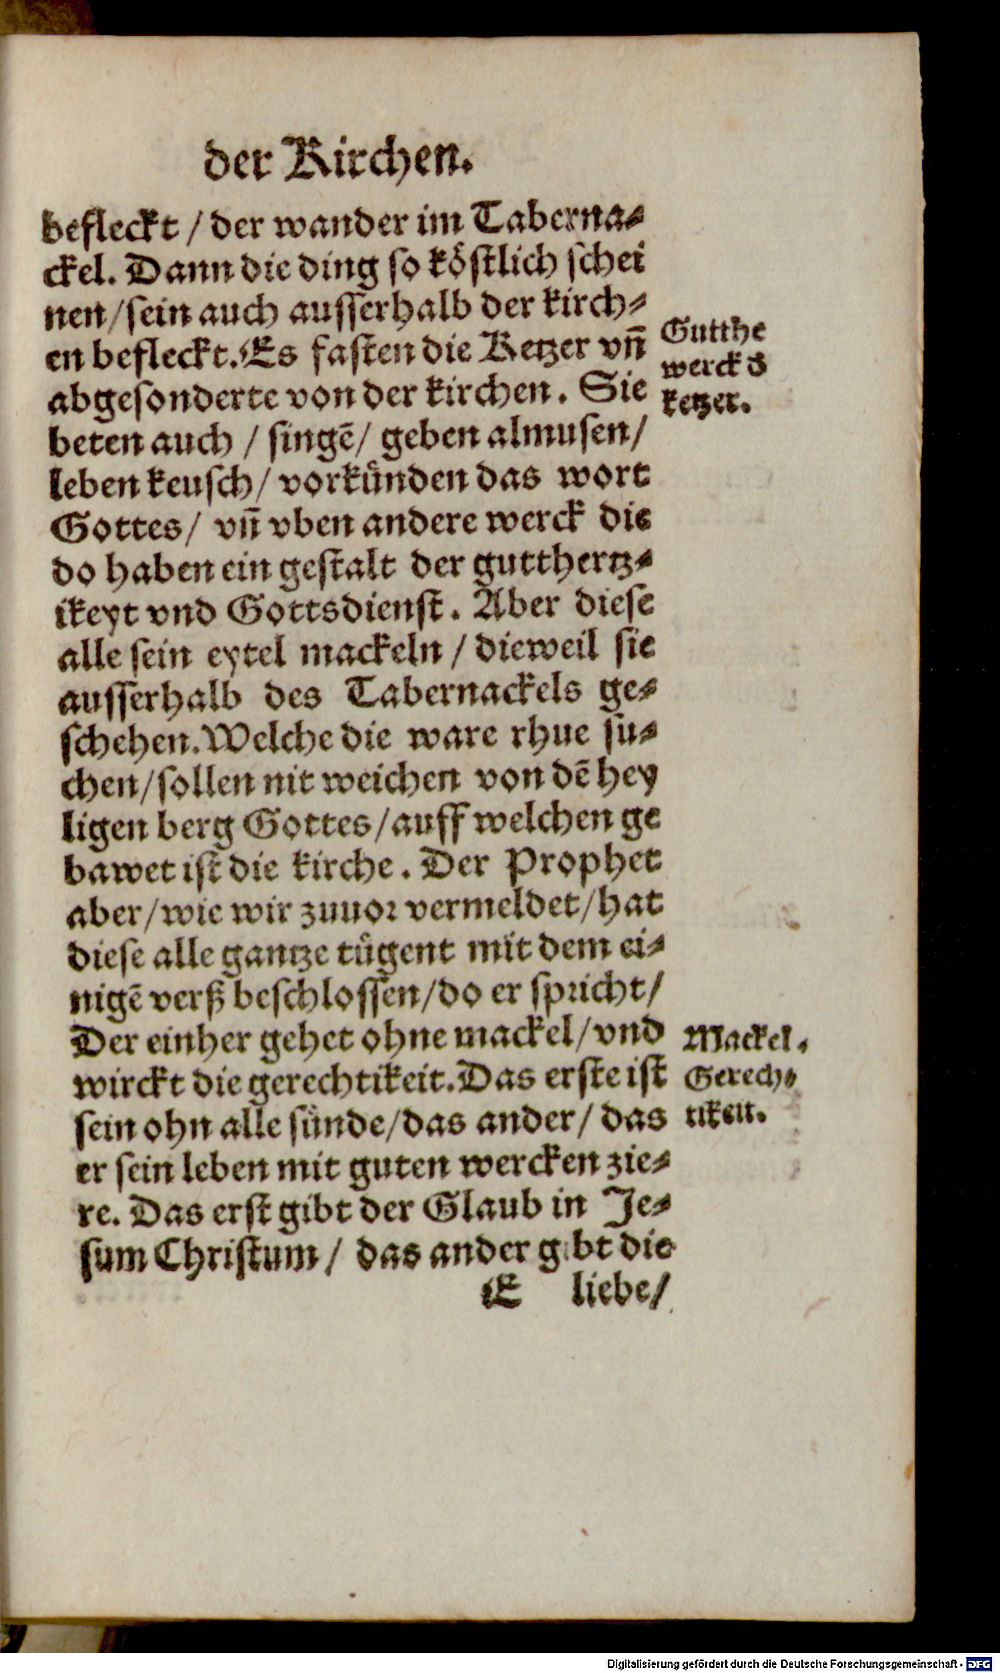 der Kirchen.
befleckt / der wander im Taberna⸗
ckel. Dann die ding so köstlich schei
nen/sein auch ausserhalb der kirch⸗
en befleckt. Es fasten die Ketzer vn̄
abgesonderte von der kirchen. Sie
beten auch / singē/ geben almusen/
leben keusch/ vorkünden das wort
Gottes/ vn̄ vben andere werck die
do haben ein gestalt der gutthertz⸗
ikeyt vnd Gottsdienst. Aber diese
alle sein eytel mackeln / dieweil sie
ausserhalb des Tabernackels ge⸗
schehen. Welche die ware rhue su⸗
chen/sollen nit weichen von dē hey
ligen berg Gottes/auff welchen ge
bawet ist die kirche. Der Prophet
aber/wie wir zuuor vermeldet/hat
diese alle gantze tügent mit dem ei⸗
nigē verß beschlossen/do er spricht/
Der einher gehet ohne mackel/vnd
wirckt die gerechtikeit. Das erste ist
sein ohn alle sünde/das ander/ das
er sein leben mit guten wercken zie⸗
re. Das erst gibt der Glaub in Je⸗
sum Christum / das ander gibt die
E liebe/
Gutthe
werck d̕
ketzer.
Mackel.
Gerech⸗
tikeit.
Digitalisierung gefördert durch die Deutsche Forschungsgemeinschaft - DFG